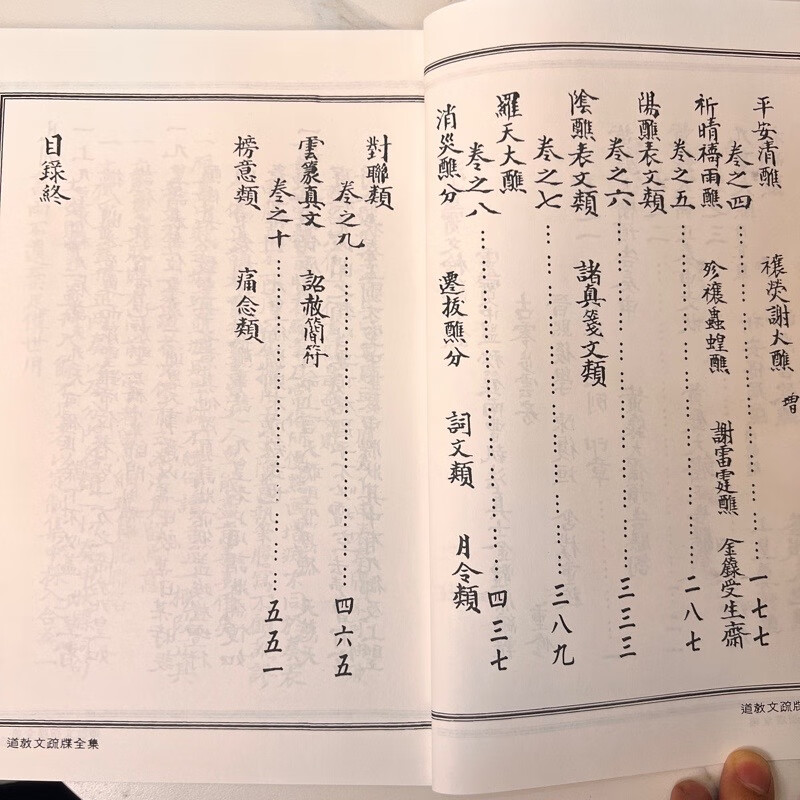 卷之四……一七七
平安清醮　禳熒謝火醮　增
謝雷霆醮　金籙受生齋
祈晴禱雨醮　殄禳蟲蝗醮
卷之五……二八七
陽醮表文類
卷之六……三三三
陰醮表文類　諸真箋文類
卷之七……三八九
羅天大醮
卷之八……四三七
消災醮分　遷拔醮分　詞文類　月令類
道教文疏牒
對聯類
卷之九……四六五
雲篆真文　詔赦簡符
卷之十……五五一
榜意類　痛念類
目錄終
道教文疏牒全集